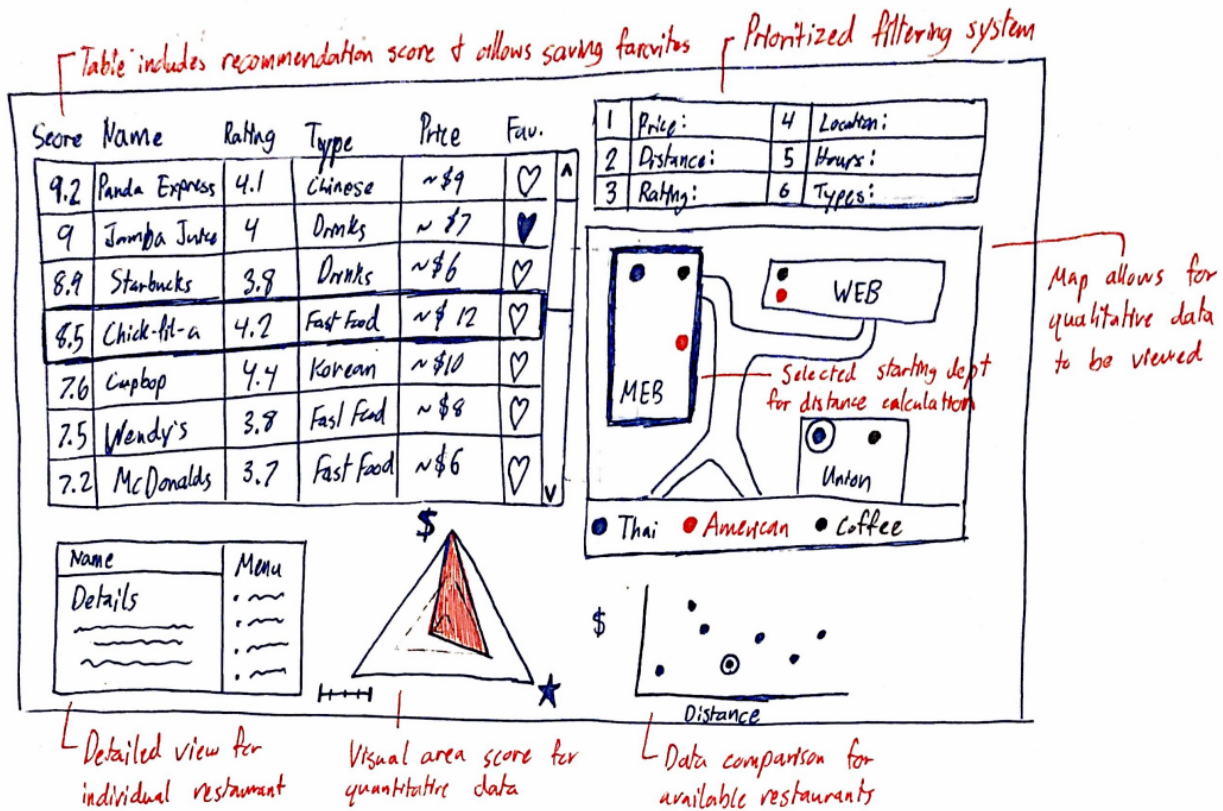 Table includes recommendation score & allows saving favorites
Prioritized filtering system
Score Name Rating Type Price Fav.
9.2 Panda Express 4.1 Chinese ~$9
9 Jamba Juice 4 Drinks ~$7
8.9 Starbucks 3.8 Drinks ~$6
8.5 Chick-fil-a 4.2 Fast Food ~$12
7.6 Cupbop 4.4 Korean ~$10
7.5 Wendy's 3.8 Fast Food ~$8
7.2 McDonalds 3.7 Fast Food ~$6
1 Price: 4 Location:
2 Distance: 5 Hours:
3 Rating: 6 Types:
MEB
WEB
Selected starting dept
for distance calculation
Union
Thai American Coffee
Map allows for
qualitative data
to be viewed
Name
Details
Menu
$
$
Distance
Detailed view for
individual restaurant
Visual area score for
quantitative data
Data comparison for
available restaurants